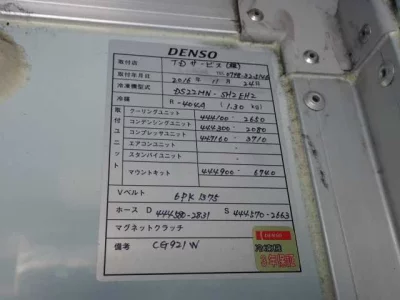 DENSO
取付店 TDサービス(株)
取付年月日 2016 年 11 月 24 日
冷凍機型式 DS22MN-5H2EH2
冷媒 R-404A (1.30 kg)
取付ユニット
クーリングユニット 444100-2650
コンデンシングユニット 444300-2080
コンプレッサユニット 447160-3710
エアコンユニット
スタンバイユニット
マウントキット 444900-6740
Vベルト 6PK 1375
ホース D 444580-2831 S 444570-2663
マグネットクラッチ
備考 CG921W
冷凍機
3年保証